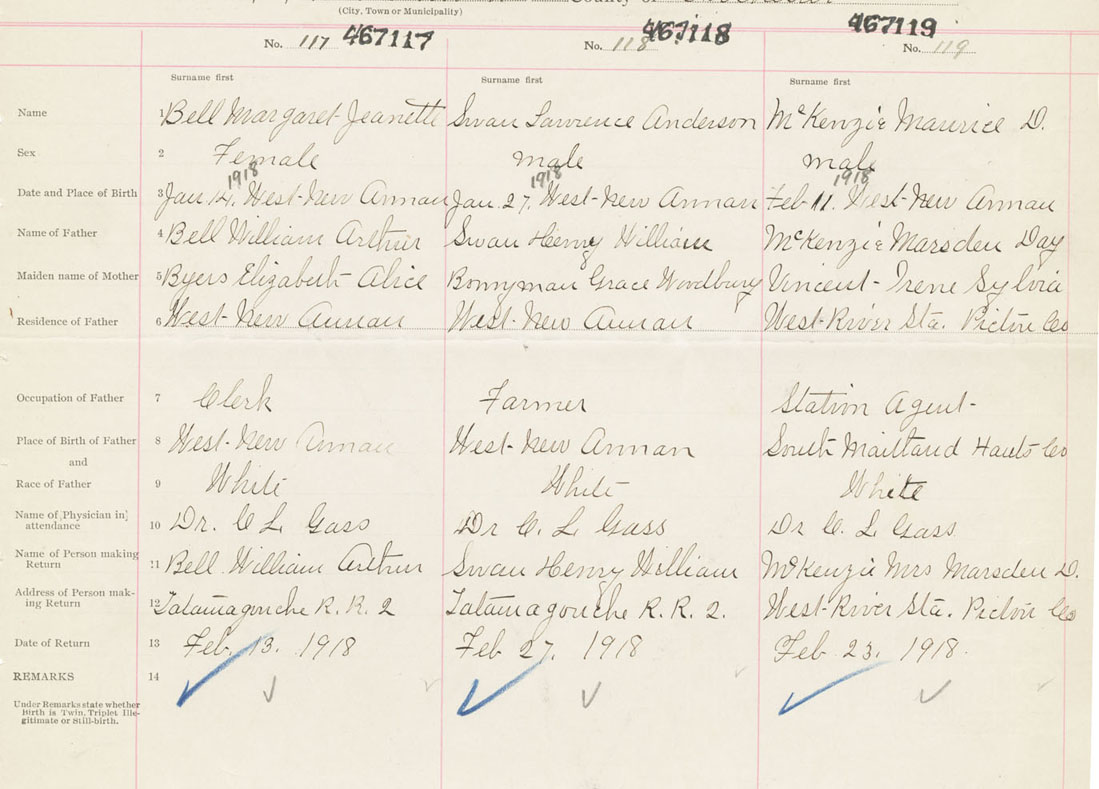 (City, Town or Municipality)
No. 117 467117 No. 118 467118 No. 119 467119
Surname first Surname first Surname first
Name 1 Bell Margaret Jeanette Swan Lawrence Anderson McKenzie Maurice D.
Sex 2 Female male male
1918 1918 1918
Date and Place of Birth 3 Jan 14, West-New Annan Jan. 27, West-New Annan Feb 11. West-New Annan
Name of Father 4 Bell William Arthur Swan Henry William McKenzie Marsden Day
Maiden name of Mother 5 Byers Elizabeth Alice Bonyman Grace Woodbury Vincent-Irene Sylvia
Residence of Father 6 West-New Annan West-New Annan West-River Sta. Pictou Co
Occupation of Father 7 Clerk Farmer Station Agent-
Place of Birth of Father 8 West-New Annan West-New Annan South Maitland Hants Co
and
Race of Father 9 White White White
Name of [Physician in]
attendance 10 Dr. C L Gass Dr C. L Gass Dr C. L Gass
Name of Person making
Return 11 Bell William Arthur Swan Henry William McKenzie Mrs Marsden D.
Address of Person mak-
ing Return 12 Tatamagouche R. R. 2 Tatamagouche R. R. 2. West-River Sta. Pictou Co
Date of Return 13 Feb. 13. 1918 Feb 27. 1918 Feb 23. 1918.
REMARKS 14
Under Remarks state whether
Birth is Twin, Triplet Ille-
gitimate or Still-birth.